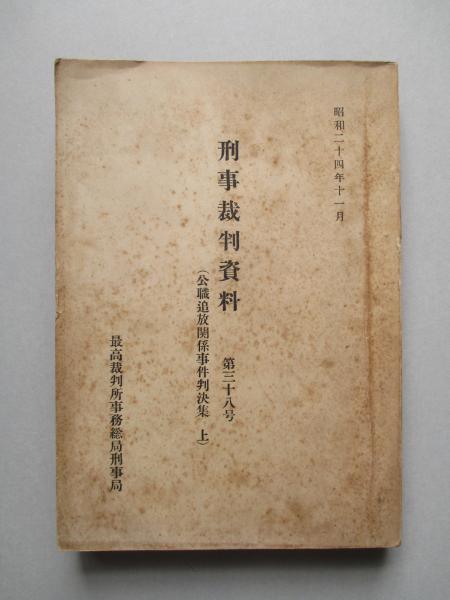 昭和二十四年十一月
刑事裁判資料 第三十八号
（公職追放関係事件判決集 上）
最高裁判所事務総局刑事局